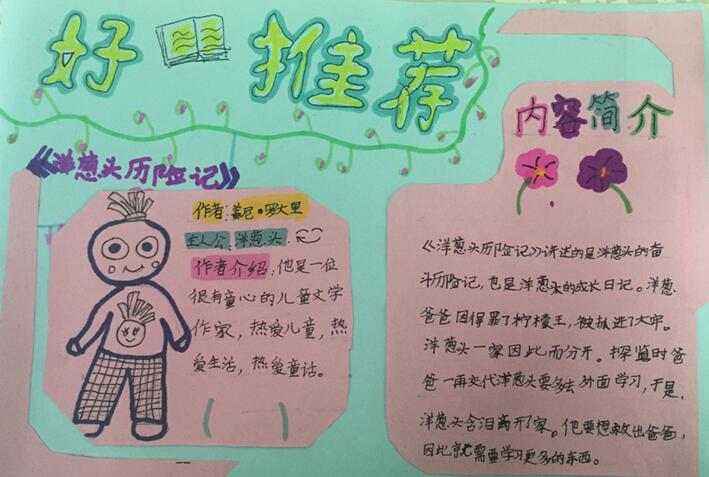 好推荐
《洋葱头历险记》
作者:姜尼·罗大里
主人公:洋葱头.
作者介绍:他是一位
很有童心的儿童文学
作家，热爱儿童，热
爱生活，热爱童话。
内容简介
《洋葱头历险记》讲述的是洋葱头的奋
斗历险记，也是洋葱头的成长日记。洋葱
爸爸因得罪了柠檬王，被抓进了大牢。
洋葱头一家因此而分开。探监时爸
爸一再交代洋葱头要多去外面学习，于是，
洋葱头含泪离开了家。他要想救出爸爸，
因此就需要学习更多的东西。